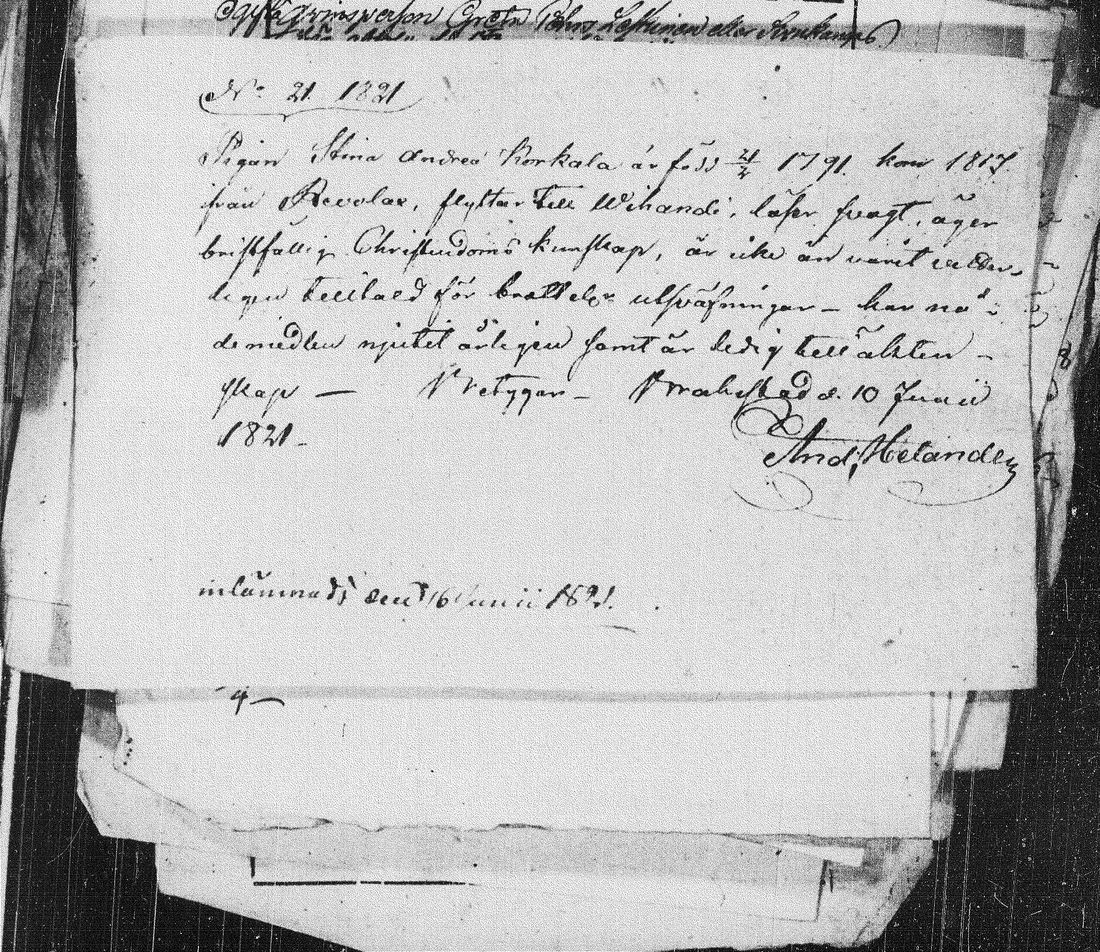 Ogifta qvinspersson Greta
No 21. 1821
Pigan Stina Andrea Korkala är föd 21/2 1791. kom 1817
från Revolax, flyttar till Wihandi, läser svagt, äger
bristfällig Christendoms kunskap, är icke än värit veder-
ligen tilltald för brottslige utsväfningar – har nå-
demedlen njutit årligen samt är ledig till äkten-
skap — betygar – Brahestad d. 10 Junii
1821.
And. Helander
inlämnads den 16 Junii 1821.
4 —